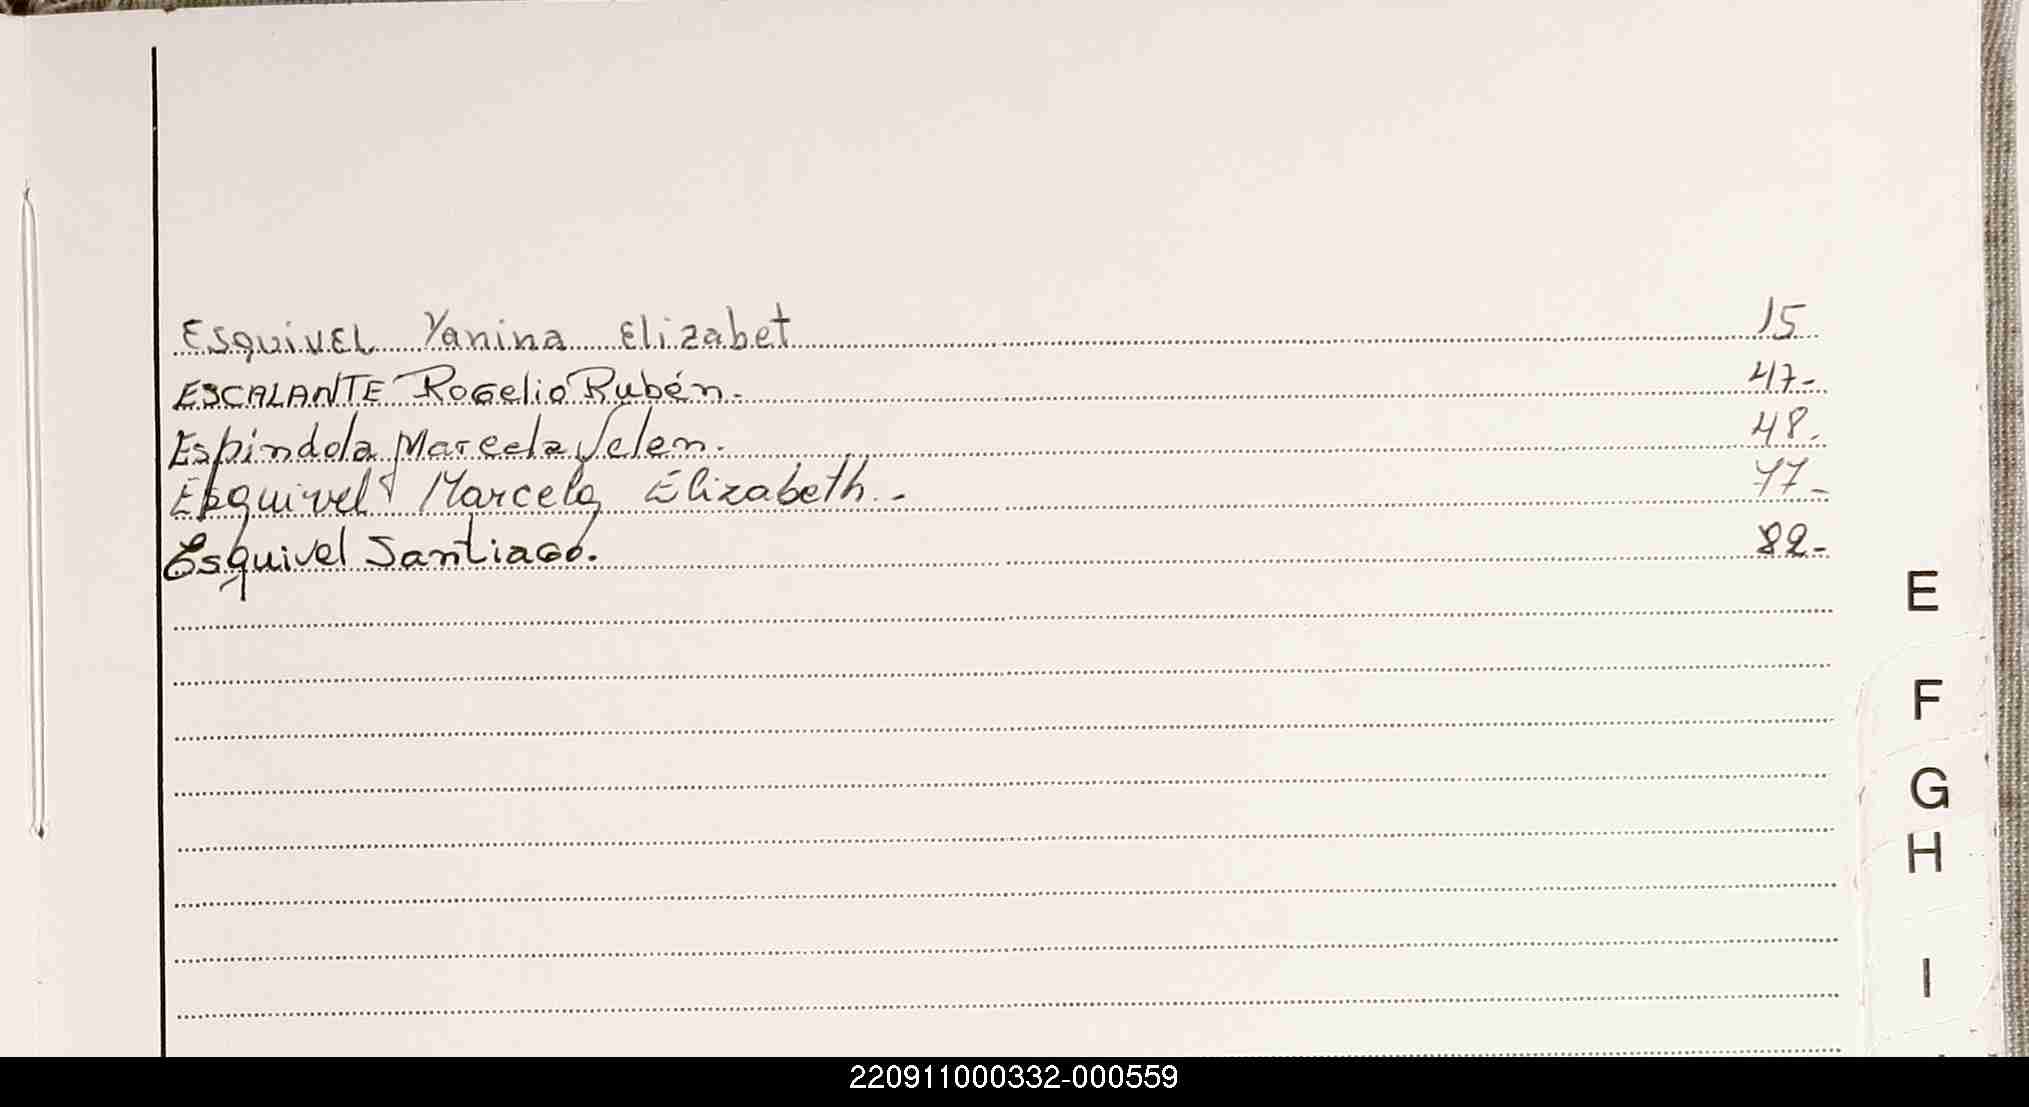 Esquivel Yanina Elizabet 15
ESCALANTE Rogelio Rubén. 47-
Espindola Marcela 48.
Esquivel Marcela Elizabeth.- 77-
Esquivel Santiago. 82-
E
F
G
H
I
220911000332-000559